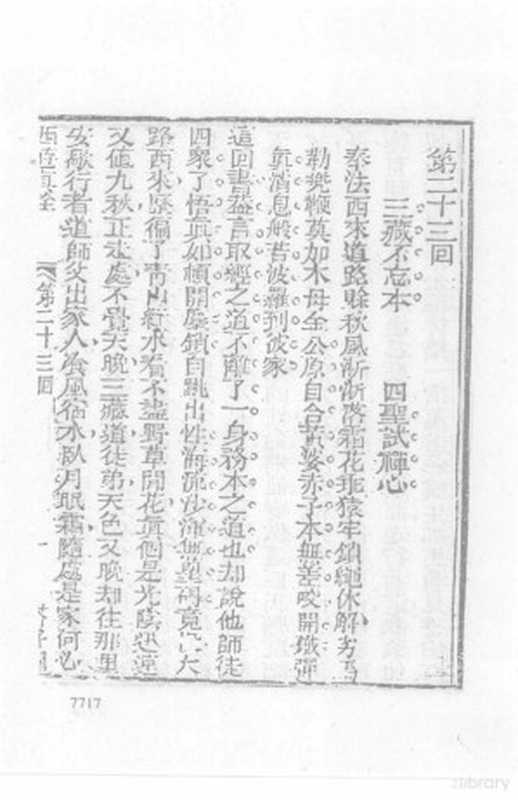 第二十三回
三藏不忘本　四聖試禪心
奉法西來道路賒秋風淅淅落霜花乖猿牢鎖繩休解劣馬
勤兜鞭莫加木母金公原自合黃婆赤子本無差咬開鐵彈
真消息般若波羅到彼家
這回書蓋言取經之道不離了一身務本之道也却說他師徒
四衆了悟真如頓開塵鎖自跳出性海流沙渾無罣礙竟大
路西來歷徧了青山綠水看不盡野草閒花真個是光陰迅速
又值九秋正走處不覺天晚三藏道徒弟天色又晚却往那里
安歇行者道師父出家人飡風宿水臥月眠霜隨處是家何必
西遊真詮　第二十三回　一
7717
zlibrary